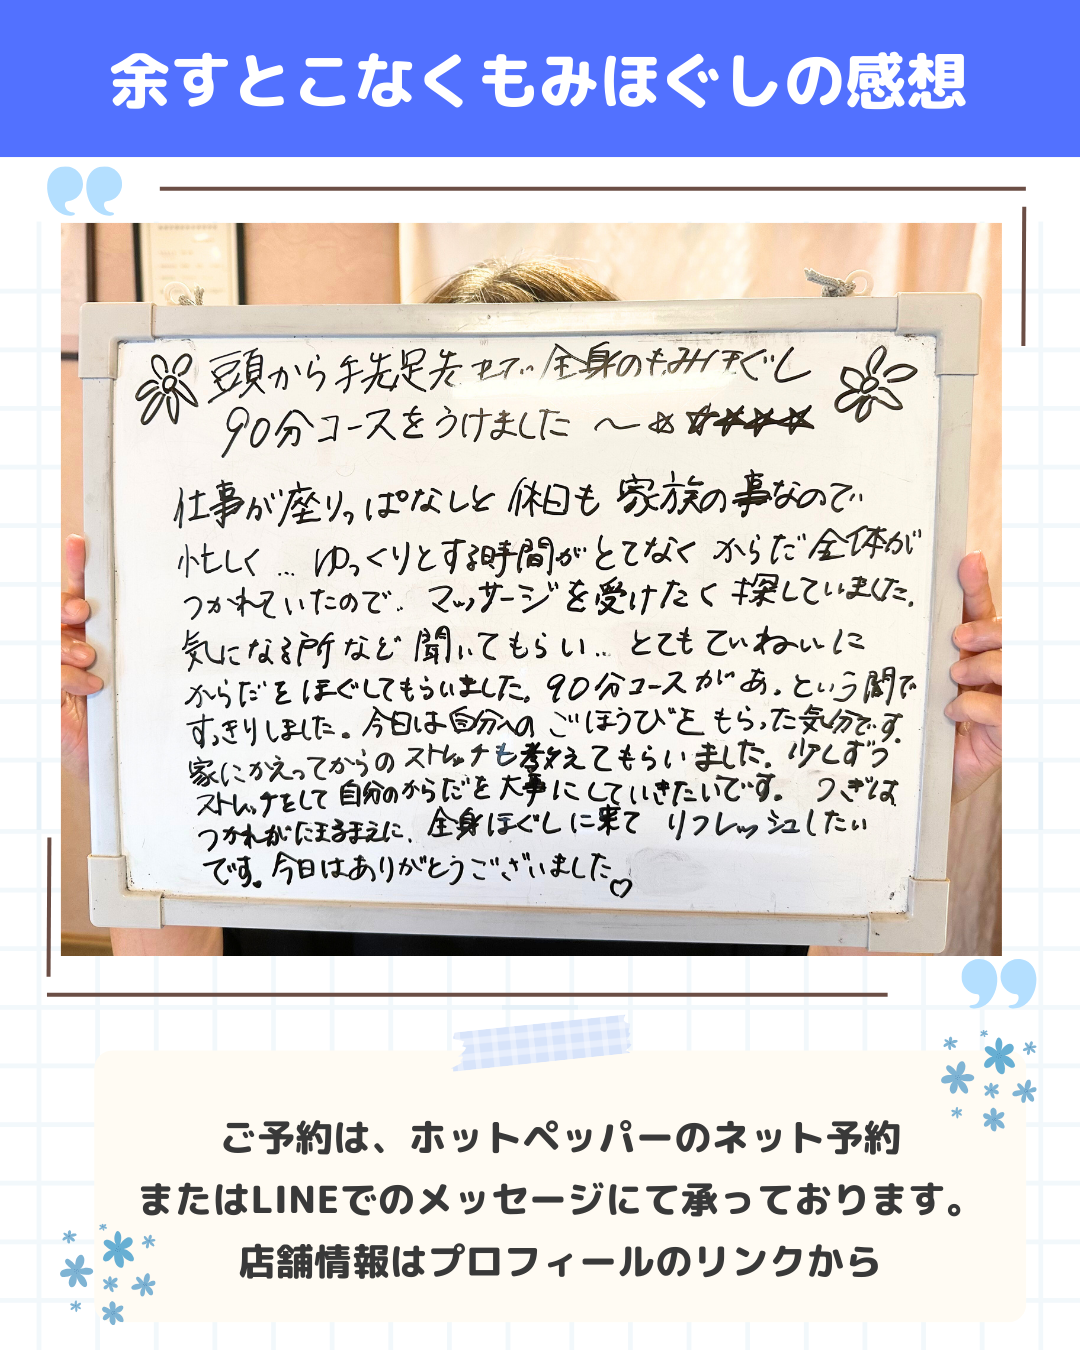 余すとこなくもみほぐしの感想
頭から手先足先まで 全身のもみほぐし
90分コースをうけました 〜
仕事が座りっぱなしと 休日も 家族の事なので
忙しく … ゆっくりとする時間がとてなく からだ全体が
つかれていたので.. マッサージを受けたく 探していました.
気になる所など 聞いてもらい… とてもていねいに
からだをほぐしてもらいました. 90分コースがあ. という間で
すっきりしました。今日は自分への ごほうびを もらった気分です.
家にかえってからの ストレッチも教えてもらいました. 少しずつ
ストレッチをして 自分のからだを大事にしていきたいです。 つぎは
つかれがたまるまえに. 全身ほぐしに来て リフレッシュしたい
です。今日はありがとうございました♡
ご予約は、ホットペッパーのネット予約
またはLINEでのメッセージにて承っております。
店舗情報はプロフィールのリンクから